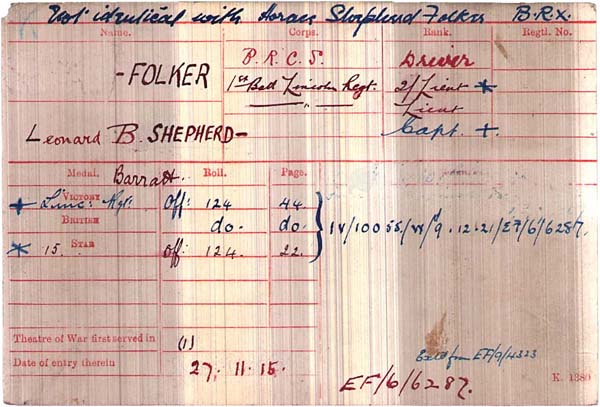 Not identical with Horace Shepherd Folker B.R.X.
Name. Corps. Rank. Regtl. No.
B. R. C. S. Driver
-FOLKER 1st Batt Lincoln Regt. 2/Lieut *
" Lieut
Leonard B. SHEPHERD- Capt. +
Barratt.
Medal. Roll. Page.
+ VICTORY Linc: Rgt: Off: 124 44.
BRITISH do. do.
* 15 STAR off: 124. 22.
IV/10055/W/9. 12.21/EF/6/6287.
Theatre of War first served in (1)
Date of entry therein 27. 11. 15.
Extd from EF/9/4323
EF/6/6287.
K. 1380